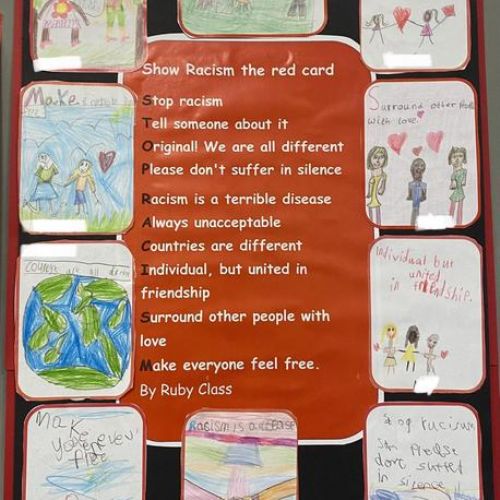 Show Racism the red card
Stop racism
Tell someone about it
Original! We are all different
Please don't suffer in silence
Racism is a terrible disease
Always unacceptable
Countries are different
Individual, but united in
friendship
Surround other people with
love
Make everyone feel free.
By Ruby Class
Make
Surround other
with love.
Individual but
united
in friendship.
Make
free
Racism is a
Stop racism
Please
dont suffer
in silence